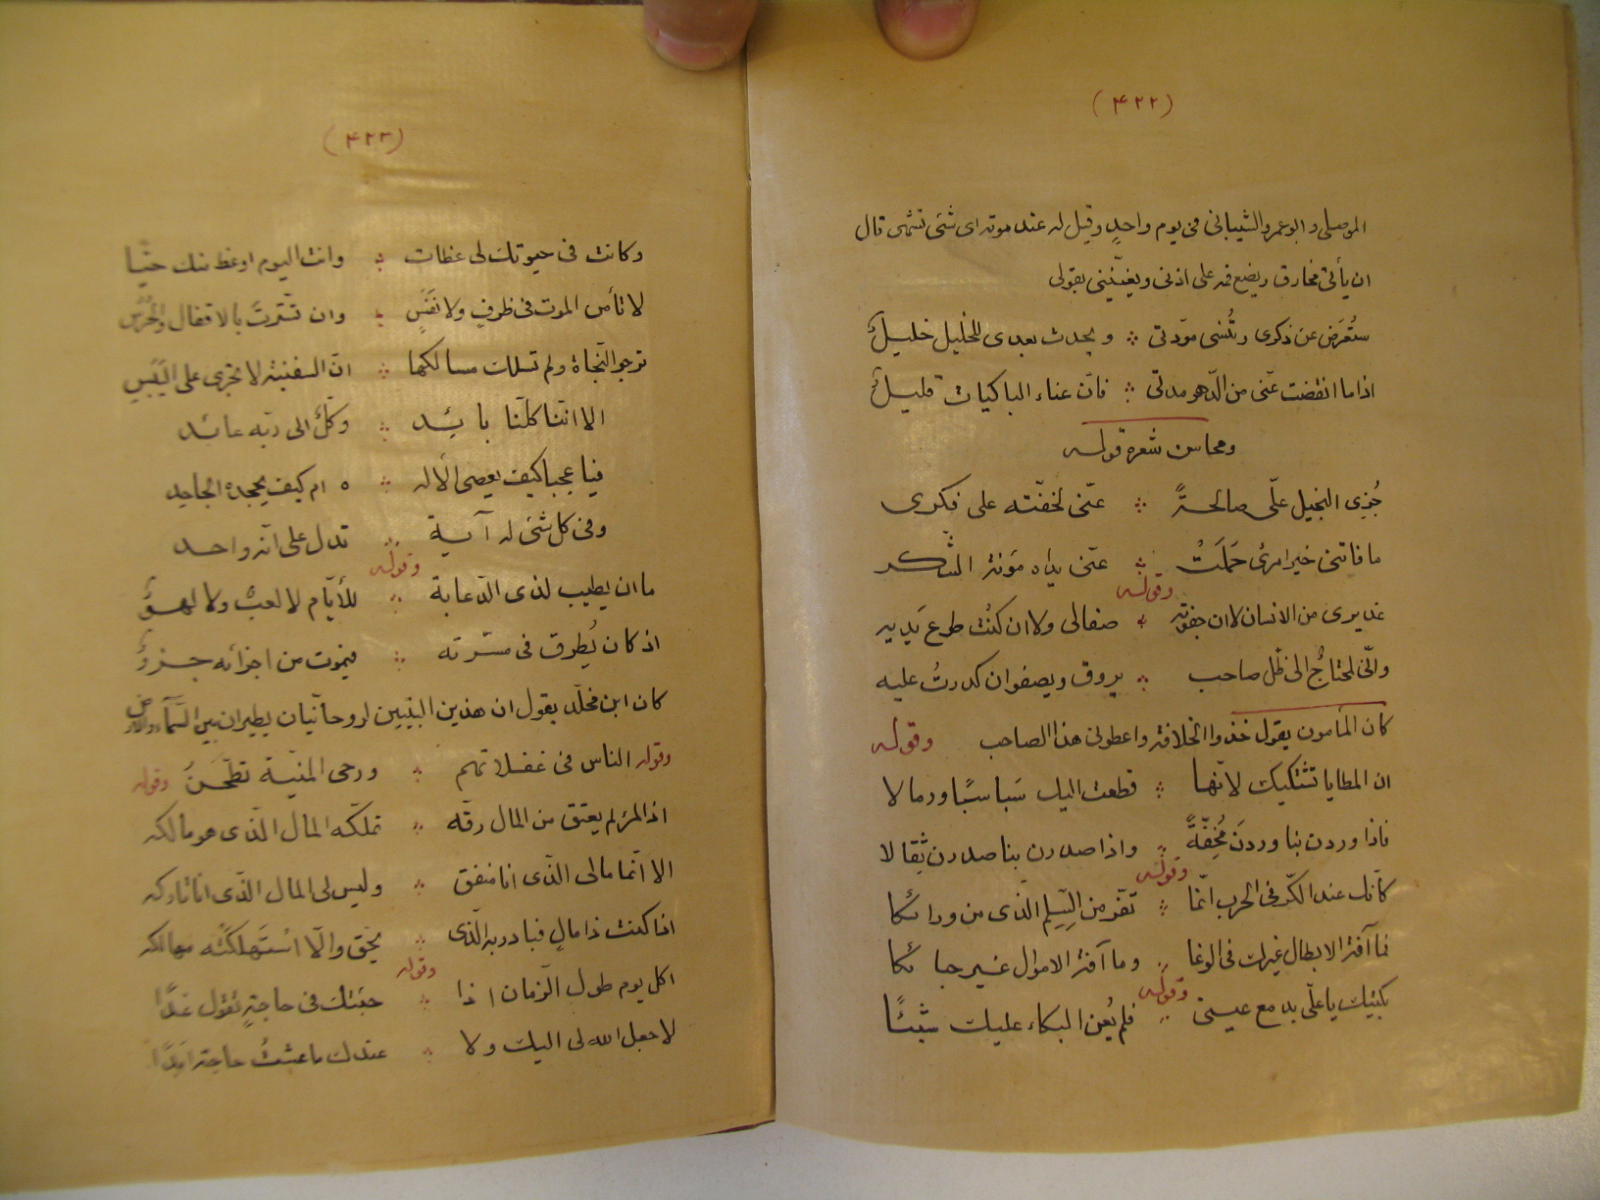 (۴۲۲)
الموصلی و ابوعمرو الشیبانی فی یوم واحدٍ و قیل له عند موته ای شئ تشتهی قال
ان یأتی مخارق و یضع فمه علی اذنی و یغنّینی بقولی
ستُعرَض عن ذکری و تُنسی مودّتی ؞ و یحدث بعدی للخلیل خلیلُ
اذا ما انقضت عنّی من الدّهر مدتی ؞ فانّ عناء الباکیات قلیلُ
و محاسن شعره قوله
جُزِی البخیل علّی صالحةً ؞ عنّی لخفّته علی فکری
ما فاتنی خیر امرئ حَمَلَتْ ؞ عنّی یداه مؤنة الشکر
وقوله
عذیری من الانسان لا ان جفوته ؞ صفا لی ولا ان کنتُ طوع یَدیه
وانّی لمحتاجٌ الی ظل صاحب ؞ یروق و یصفو ان کدرتُ علیه
کان المأمون یقول خذوا الخلافة و اعطونی هذا الصاحب وقوله
ان المطایا تشتکیک لانّها ؞ قطعت الیک سَباسبًا و رمالا
فاذا وردن بنا وردنَ مُخِفّةً ؞ و اذا صدرن بنا صدرن ثِقالا
وقوله
کأنّک عند الکّر فی الحرب انّما ؞ تفّر من السِّلِم الّذی من ورائکا
فما آفة الابطال غیرک فی الوغا ؞ و ما آفة الاموال غیر حبائکا
وقوله
بکیتک یا علّی بدمع عینی ؞ فلم یُغن البکاء علیک شیئًا
(۴۲۳)
و کانت فی حیوتک لی عظات ؞ و انت الیوم اوعظ منک حیّا
لا تأمن الموت فی ظرفٍ ولا نَفَسٍ ؞ و ان تستّرتَ بالاقفال و الحَرَس
ترجو النّجاة ولم تسلک مسالکها ؞ انّ السفینة لا تجری علی الیَبَسِ
الا انّنا کلّنا بائد ؞ و کلٌ الی ربّه عائد
فیا عجبا کیف یعصی الاله ؞ ام کیف یجحده الجاحد
و فی کل شئ له آیة ؞ تدل علی انّه واحد
وقوله
ما ان یطیب لذی الدّعابة ؞ للأیّام لا لعبٌ ولا لهوٌ
اذ کان یُطرق فی مسّرته ؞ فیموت من اجزائه جزوٌ
کان ابن مخلّد یقول ان هذین البیتین لروحانّیان یطیران بین السّمآء والارض
وقوله الناس فی غفلاتهم ؞ و رحی المنیة تطحَنُ وقوله
اذ المرء لم یعتق من المال رقّه ؞ تملّکه المال الّذی هو مالکه
الا انّما مالی الّذی انا منفق ؞ و لیس لی المال الّذی انا تارکه
اذا کنت ذا مالٍ فبادر به الّذی ؞ یحّق و الّا استَهلکتْه مهالکه
وقوله
اکل یوم طول الزّمان اذا ؞ جئتک فی حاجةٍ تقول غدًا
لا جعل الله لی الیک ولا ؞ عندک ما عشتُ حاجة ابدًا